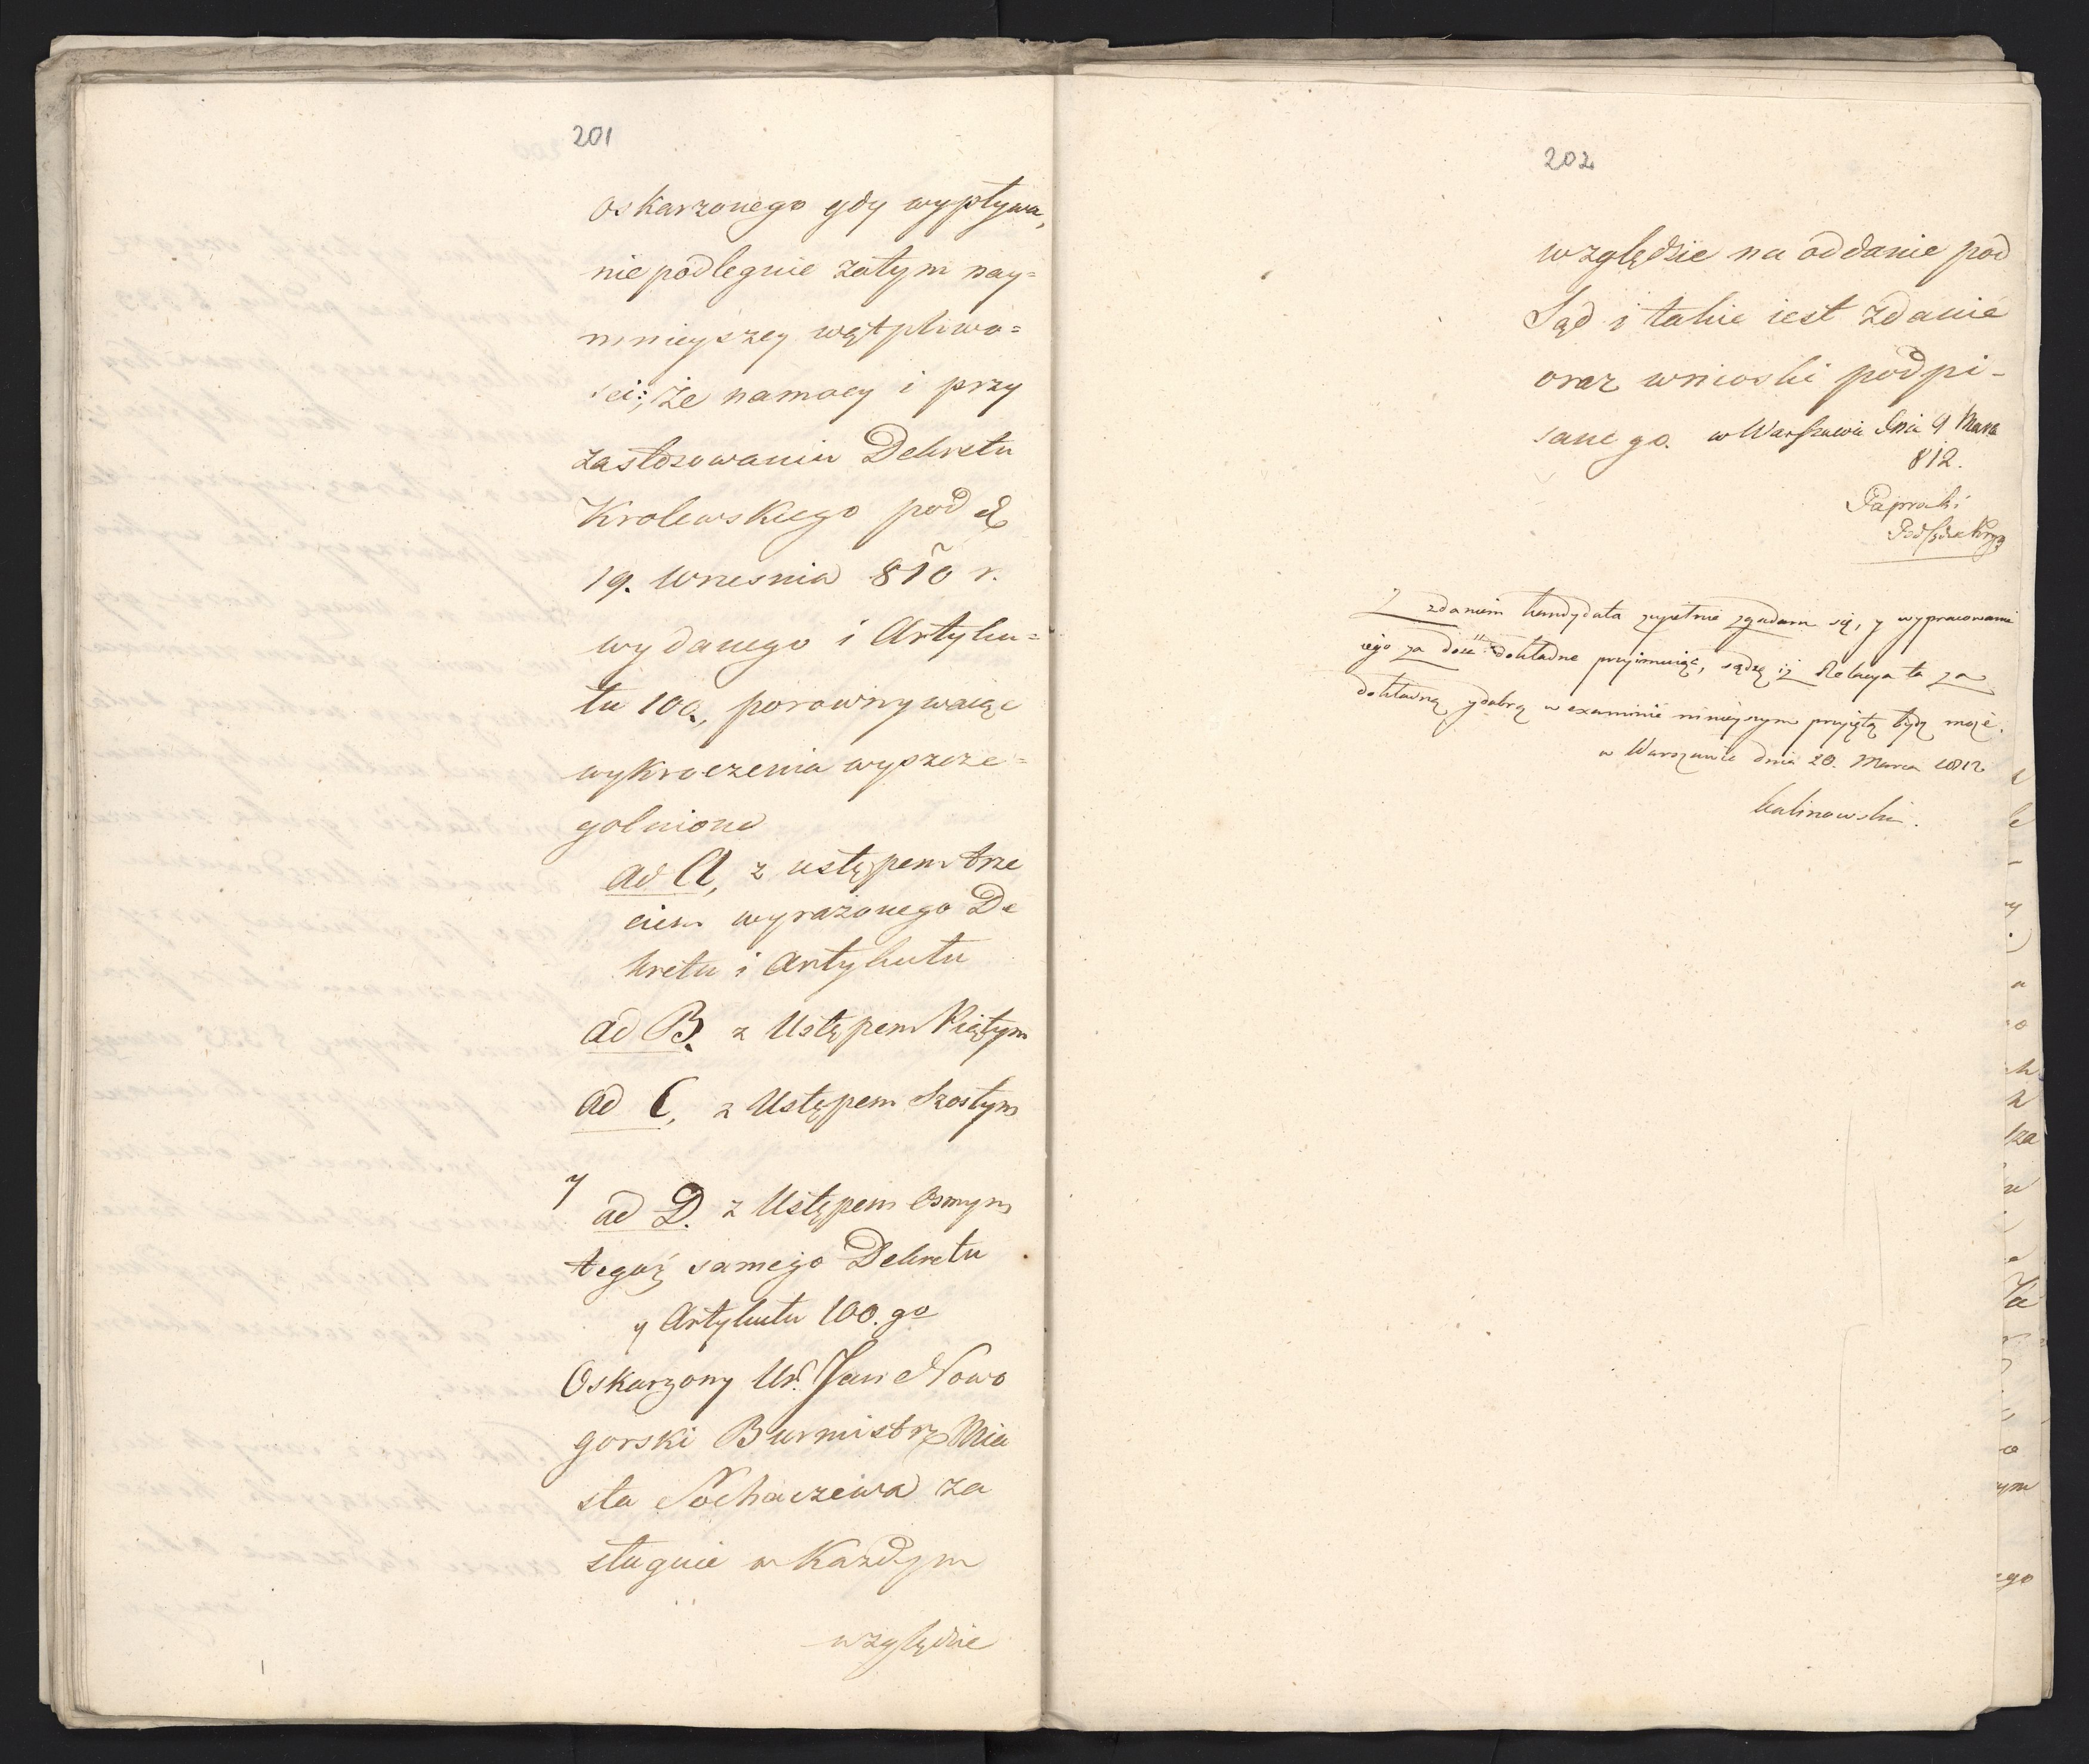 201
oskarzonego gdy wypływa,
nie podlegnie zatym nay=
mnieyszey wątpliwo=
sci; że namocy i przy
zastosowaniu Dekretu
Krolewskiego pod d
19. Wrzesnia 810 r.
wydanego i Artyku=
łu 100, porownywaiąc
wykroczenia wyszcze=
golnione
ad A, z ustępem trze
ciem wyrażonego De
kretu i Artykułu
ad B. z Ustępem Piątym
ad C, z Ustępem Szostym
y ad D. z Ustępem Osmym
tegoż samego Dekretu
y Artykułu 100.go
Oskarzony Ur. Jan Nowo
gorski Burmistrz Mia
sta Sochaczewa za
sługuie w Każdym
względzie
202
względzie na oddanie pod
Sąd i takie iest zdanie
oraz wnioski podpi-
sanego. w Warszawie dnia 9 Marca
812.
Paprocki
Z zdaniem kandydata zupełnie zgadzam się, y wypracowanie
iego za dość dokładne przyimuiąc, sądzę iż Relacya ta za
dokładną y dobrą w examinie ninieyszym przyiętą bydź może.
w Warszawie dnia 20. Marca 1812
Kalinowski.